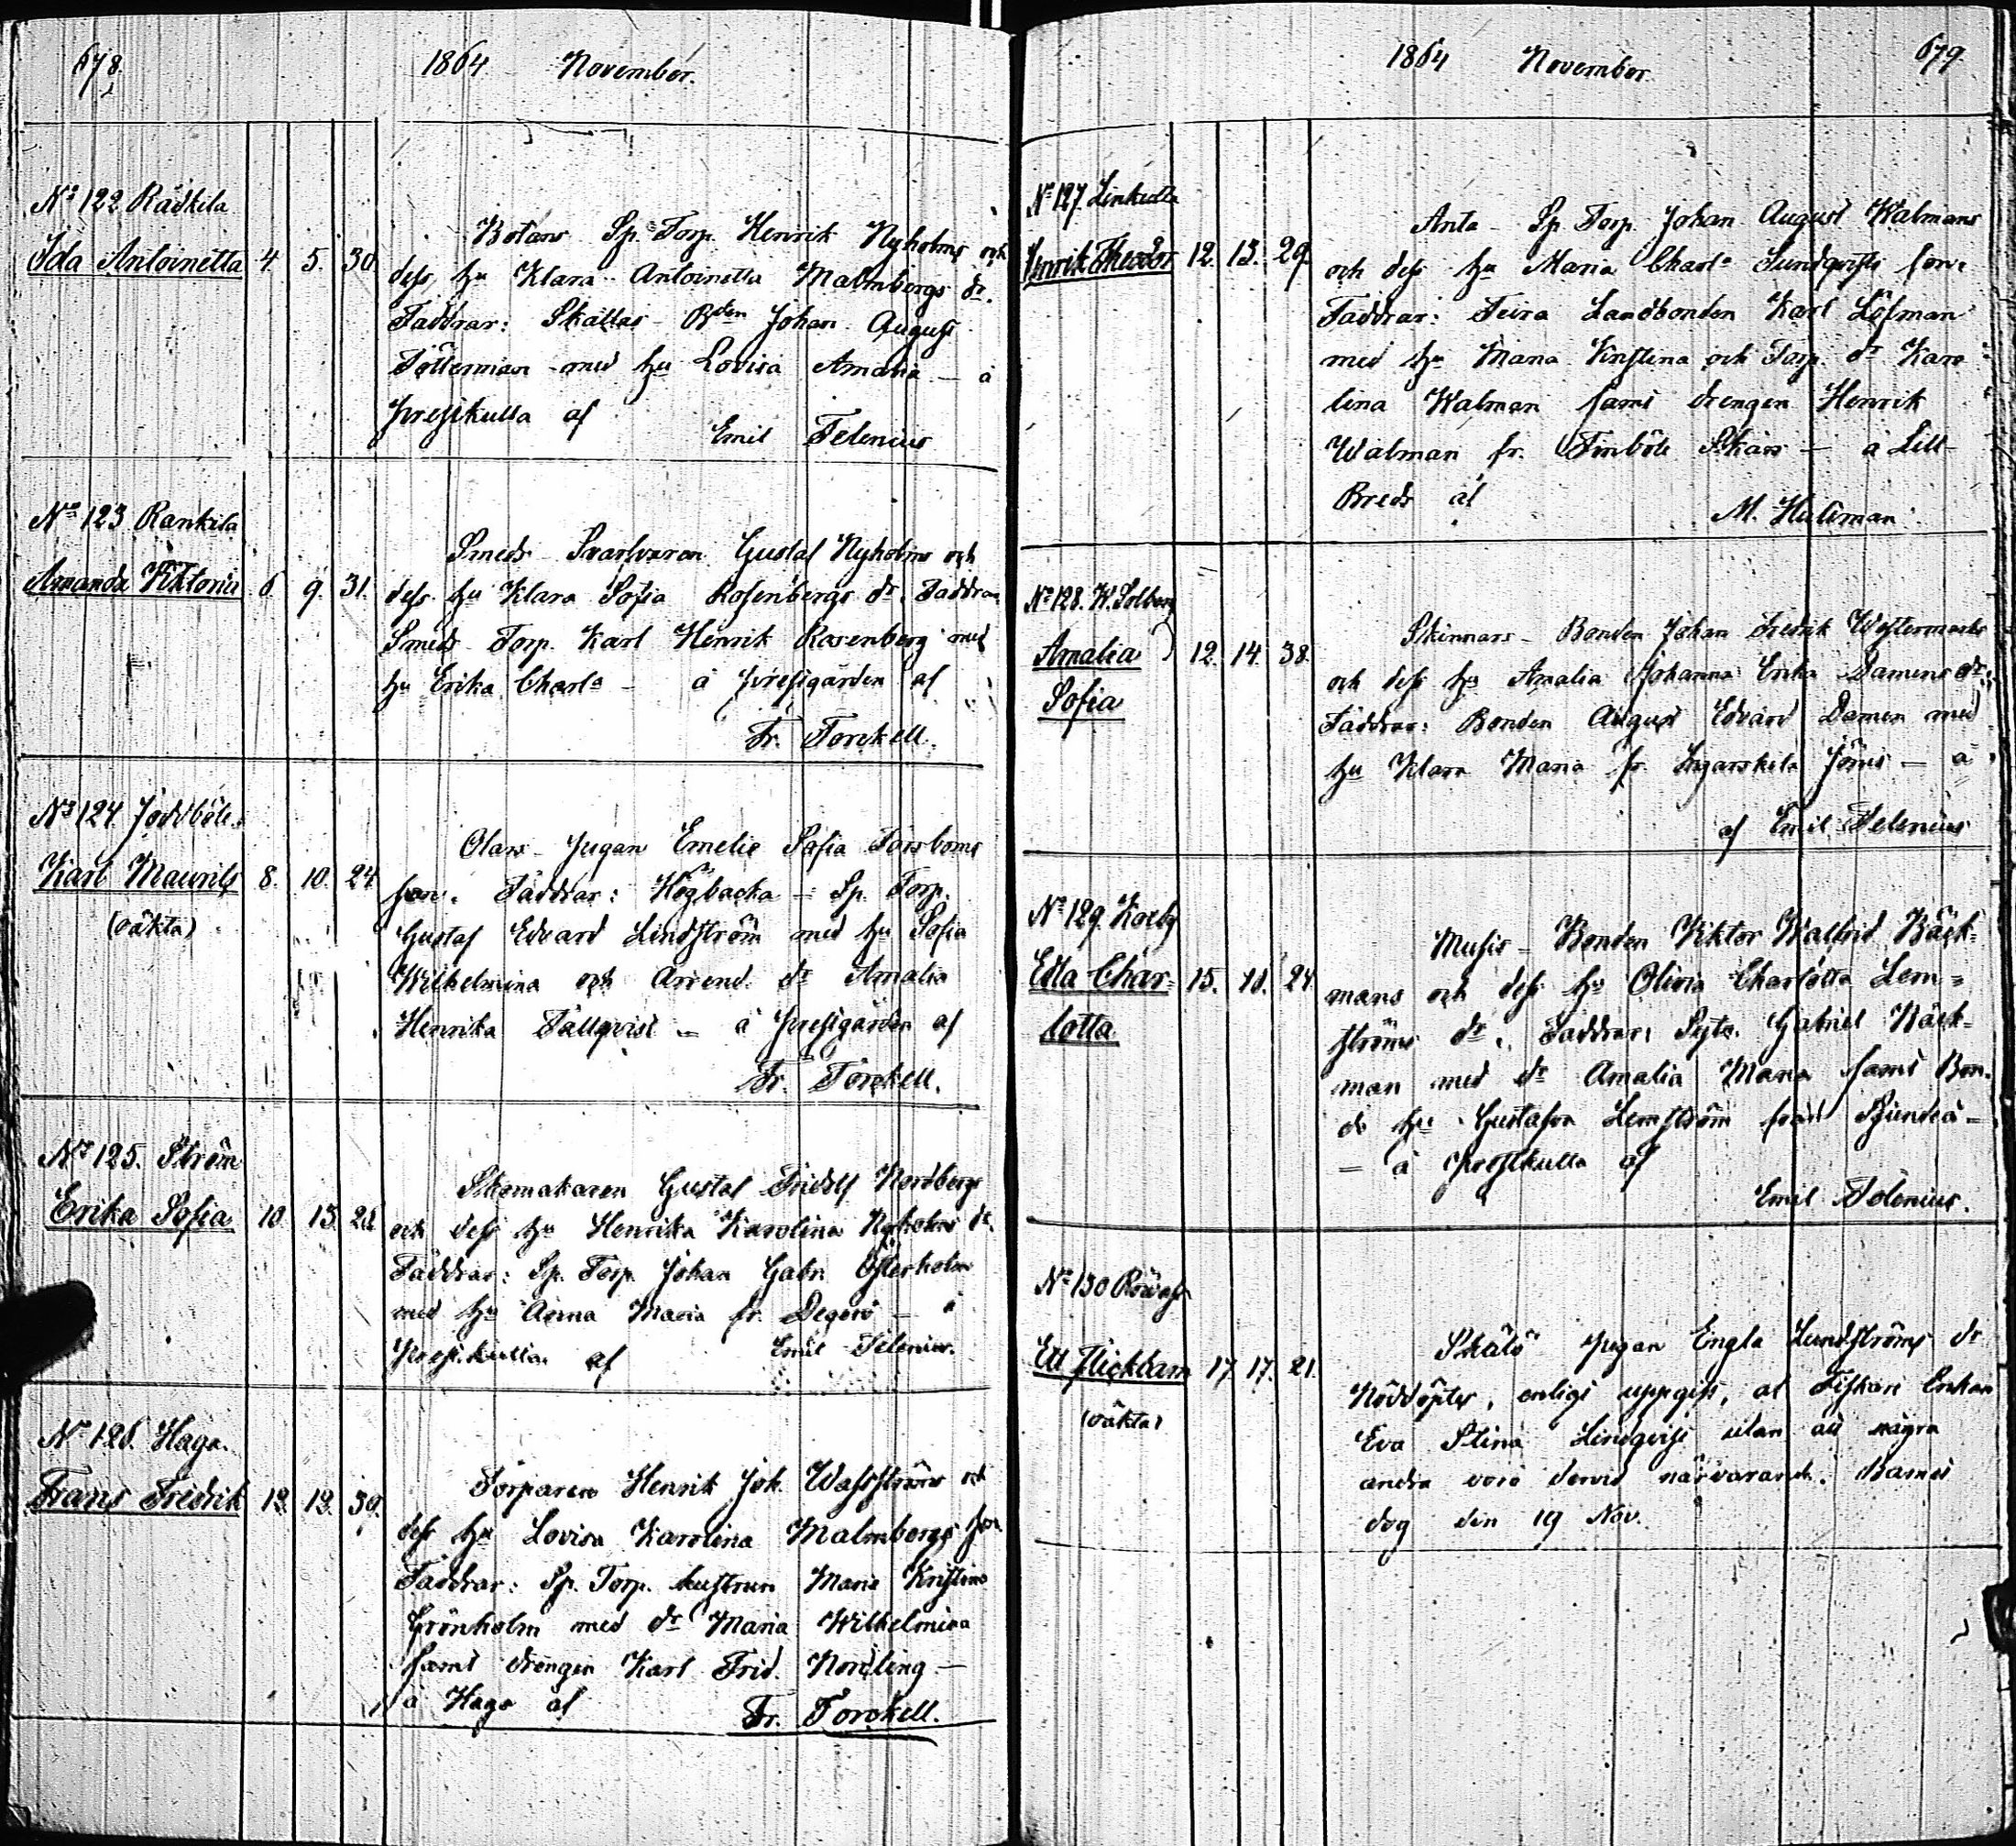 678.
1864 November.
Nº 122 Räckila
Ida Antoinetta 4. 5. 30.
Botans Sp. Torp. Henrik Nyholms och
dess hu Klara Antoinetta Malmbergs dr.
Faddrar: Skattas Bden Johan August
Tötterman med hu Lovisa Amalia – å
prestkulla af
Emil Telenius
Nº 123 Rankila
Amanda Viktoria 6. 9. 31.
Smeds Svarfvaren Gustaf Nyholms och
dess hu Klara Sofia Rosenbergs dr. Faddrar
Smeds Torp. Karl Henrik Rosenberg med
hu Erika Charla – å prestgården af
Fr. Torckell.
Nº 124. Joddböle
Karl Maurits 8. 10. 24.
(oäkta)
Olars – pigan Emelie Sofia Forsboms
son. Faddrar: Högbacka – Sp. Torp.
Gustaf Edvard Lindström med hu Sofia
Wilhelmina och Arrend. dr Amalia
Henrika Fällqvist – å prestgården af
Fr. Torckell.
Nº 125. Ström
Erika Sofia 10. 13.
Skomakaren Gustaf Fridolf Nordbergs
och dess hu Henrika Karolina Nyholms dr.
Faddrar: Sp. Torp. Johan Gabr. Österholm
med hu Anna Maria fr. Degerö – å
prestkulla af
Emil Telenius.
Nº 126. Haga.
Frans Fredrik 12. 13. 39.
Torparen Henrik Joh. Wahlströms och
dess hu Lovisa Karolina Malmbergs son
Faddrar: Sp. Torp. hustrun Maria Kristina
Grönholm med dr Maria Wilhelmina
samt drengen Karl Frid. Nordling –
å Haga af
Fr. Torckell.
1864 November.
679.
Nº 127. Linkulla
Henrik Theodor 12. 13. 29.
Anta – Sp. Torp. Johan August Walmans
och dess hu Maria Charla Sundqvists son.
Faddrar: Teira Landbonden Karl Löfman
med hu Maria Kristina och Torp. dr Karo
lina Walman samt drengen Henrik
Walman fr. Finböle Skärs – å Lill
Breds af
M. Hallman.
Nº 128. W. Solberg
Amalia 12. 14. 38.
Sofia
Skinnars – Bonden Johan Fredrik Westermarks
och dess hu Amalia Johanna Erika Damens dr.
Faddrar: Bonden August Edvard Damen med
hu Klara Maria fr. Ingarskila Jöns – å
af Emil Telenius
Nº 129. Korby
Edla Char- 15. 24.
lotta
Musis – Bonden Viktor Walfrid Bäck-
mans och dess hu Olivia Charlotta Lem=
ströms dr. Faddrar: Gabriel Bäck-
man med dr Amalia Maria samt Bon-
de hu Gustafva Lemström från Sjundeå –
– å prestkulla af
Emil Telenius.
Nº 130
Ett flickbarn 17. 17. 21.
(oäkta)
Skälö pigan Engla Lundströms dr
Nöddöptes, enligt uppgift, af Fiskari Enkan
Eva Stina Lindqvist utan att några
andra voro dervid närvarande. Barnet
dog den 19 Nov.